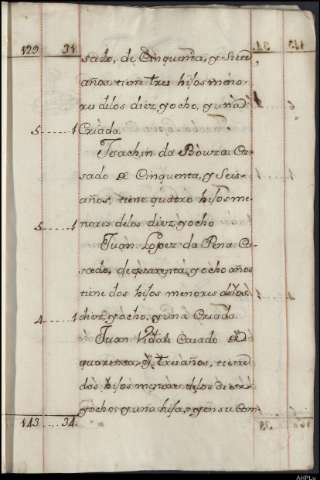 129 31
sado, de Cinquenta, y Siete
años, tiene tres hijos meno-
res de los diez, y ocho, y una
5 1 Criada.
Joachin da Bouza Ca-
sado de Cinquenta, y Seis
años, tiene quatro hijos me-
5 1 nores de los diez, y ocho
Juan Lopez da Pena Ca-
sado, de quarenta, y ocho años
tiene dos hijos menores de los
4 1 diez, y ocho, y una Criada
Juan Vidal Casado de
quarenta, y tres años, tiene
dos hijos menores de los diez,
y ocho, y una hija, y en su Com-
143 34
AHPLu